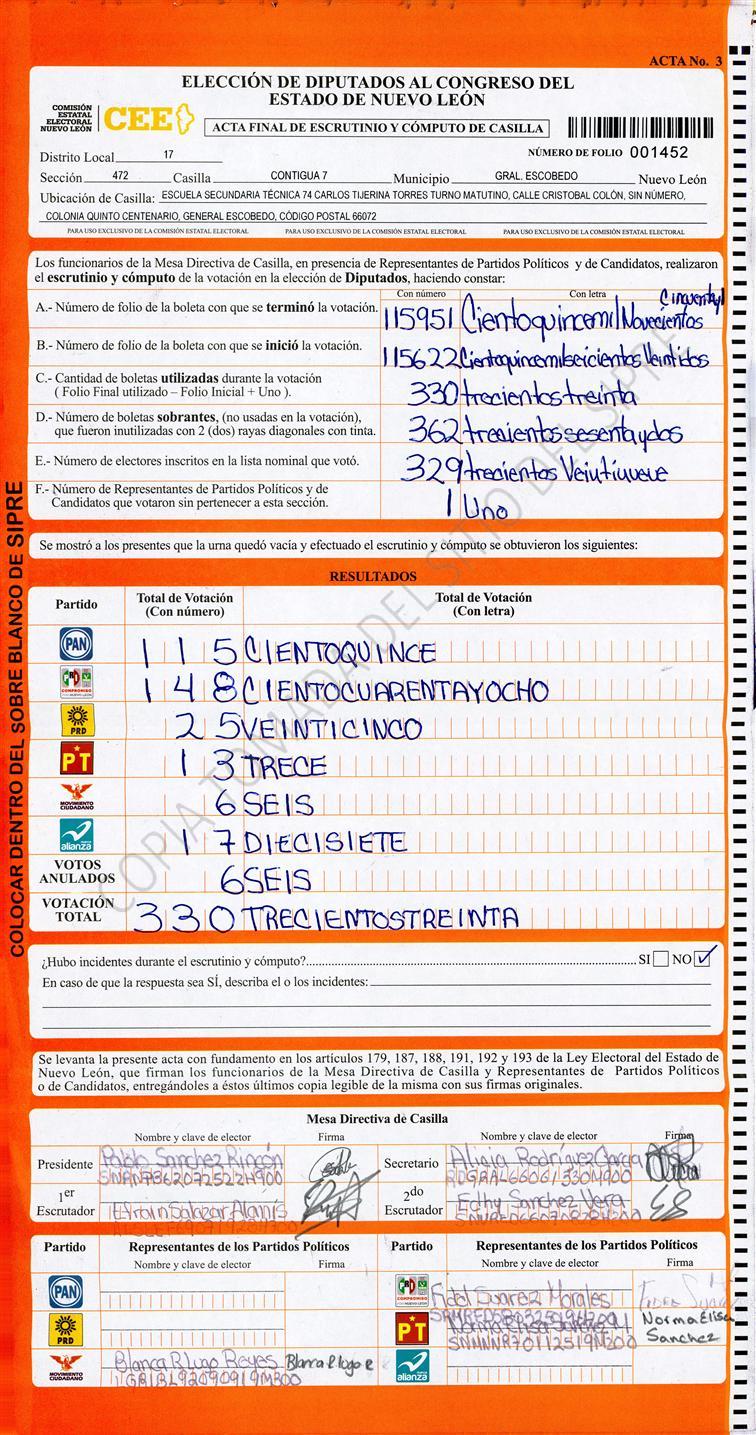 ACTA No. 3
ELECCIÓN DE DIPUTADOS AL CONGRESO DEL
ESTADO DE NUEVO LEÓN
COMISIÓN
ESTATAL
ELECTORAL
NUEVO LEÓN
CEE
ACTA FINAL DE ESCRUTINIO Y CÓMPUTO DE CASILLA
Distrito Local 17
NÚMERO DE FOLIO 001452
Sección 472 Casilla CONTIGUA 7 Municipio GRAL. ESCOBEDO Nuevo León
Ubicación de Casilla: ESCUELA SECUNDARIA TÉCNICA 74 CARLOS TIJERINA TORRES TURNO MATUTINO, CALLE CRISTOBAL COLÓN, SIN NÚMERO,
COLONIA QUINTO CENTENARIO, GENERAL ESCOBEDO, CÓDIGO POSTAL 66072
PARA USO EXCLUSIVO DE LA COMISIÓN ESTATAL ELECTORAL PARA USO EXCLUSIVO DE LA COMISIÓN ESTATAL ELECTORAL PARA USO EXCLUSIVO DE LA COMISIÓN ESTATAL ELECTORAL
Los funcionarios de la Mesa Directiva de Casilla, en presencia de Representantes de Partidos Políticos y de Candidatos, realizaron
el escrutinio y cómputo de la votación en la elección de Diputados, haciendo constar:
Con número Con letra
A.- Número de folio de la boleta con que se terminó la votación. 115951 Cientoquincemil Novecientos Cincuentay1
B.- Número de folio de la boleta con que se inició la votación. 115622 Cientoquincemilseicientos Veintidos
C.- Cantidad de boletas utilizadas durante la votación
( Folio Final utilizado – Folio Inicial + Uno ). 330 trecientos treinta
D.- Número de boletas sobrantes, (no usadas en la votación),
que fueron inutilizadas con 2 (dos) rayas diagonales con tinta. 362 trecientos sesentaydos
E.- Número de electores inscritos en la lista nominal que votó. 329 trecientos Veintinueve
F.- Número de Representantes de Partidos Políticos y de
Candidatos que votaron sin pertenecer a esta sección. 1 Uno
Se mostró a los presentes que la urna quedó vacía y efectuado el escrutinio y cómputo se obtuvieron los siguientes:
RESULTADOS
Partido Total de Votación (Con número) Total de Votación (Con letra)
PAN 115 CIENTOQUINCE
PRD COMPROMISO POR NUEVO LEÓN 148 CIENTOCUARENTAYOCHO
PRD 25 VEINTICINCO
PT 13 TRECE
MOVIMIENTO CIUDADANO 6 SEIS
alianza 17 DIECISIETE
VOTOS ANULADOS 6 SEIS
VOTACIÓN TOTAL 330 TRECIENTOSTREINTA
COLOCAR DENTRO DEL SOBRE BLANCO DE SIPRE
COPIA TOMADA DEL SITIO DEL SIPRE
¿Hubo incidentes durante el escrutinio y cómputo? SI NO ✓
En caso de que la respuesta sea SÍ, describa el o los incidentes:
Se levanta la presente acta con fundamento en los artículos 179, 187, 188, 191, 192 y 193 de la Ley Electoral del Estado de
Nuevo León, que firman los funcionarios de la Mesa Directiva de Casilla y Representantes de Partidos Políticos
o de Candidatos, entregándoles a éstos últimos copia legible de la misma con sus firmas originales.
Mesa Directiva de Casilla
Nombre y clave de elector Firma Nombre y clave de elector Firma
Presidente Pablo Sanchez Rincón Secretario Alicia Rodríguez Garcia
1er Escrutador Efrain Salazar Alanís 2do Escrutador Edhy Sanchez Vera
Partido Representantes de los Partidos Políticos Partido Representantes de los Partidos Políticos
Nombre y clave de elector Firma Nombre y clave de elector Firma
PAN
COMPROMISO Fidel Suarez Morales
PRD
PT Norma Elisa Sanchez
MOVIMIENTO CIUDADANO Blanca R lugo Reyes Blanca R lugo R
alianza